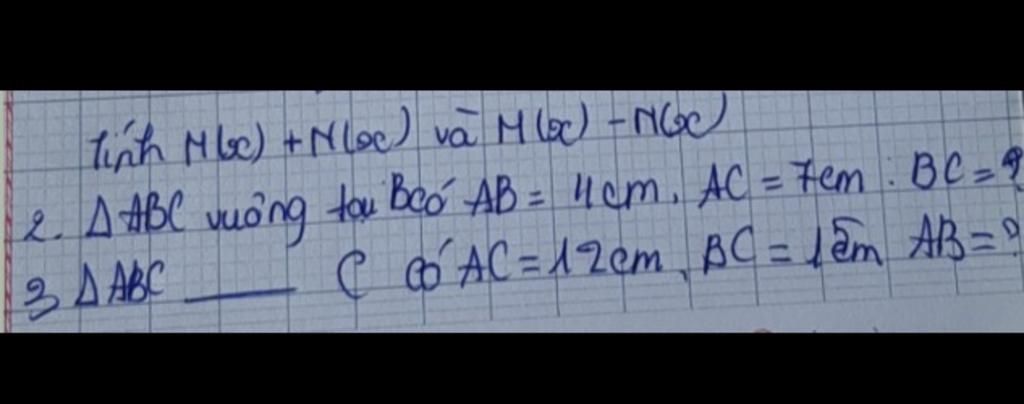 Tính M(x) + N(x) và M(x) - N(x)
2. Δ ABC vuông tại B có AB = 4cm, AC = 7cm. BC = ?
3, Δ ABC ____ C có AC = 12cm, BC = cm AB = ?